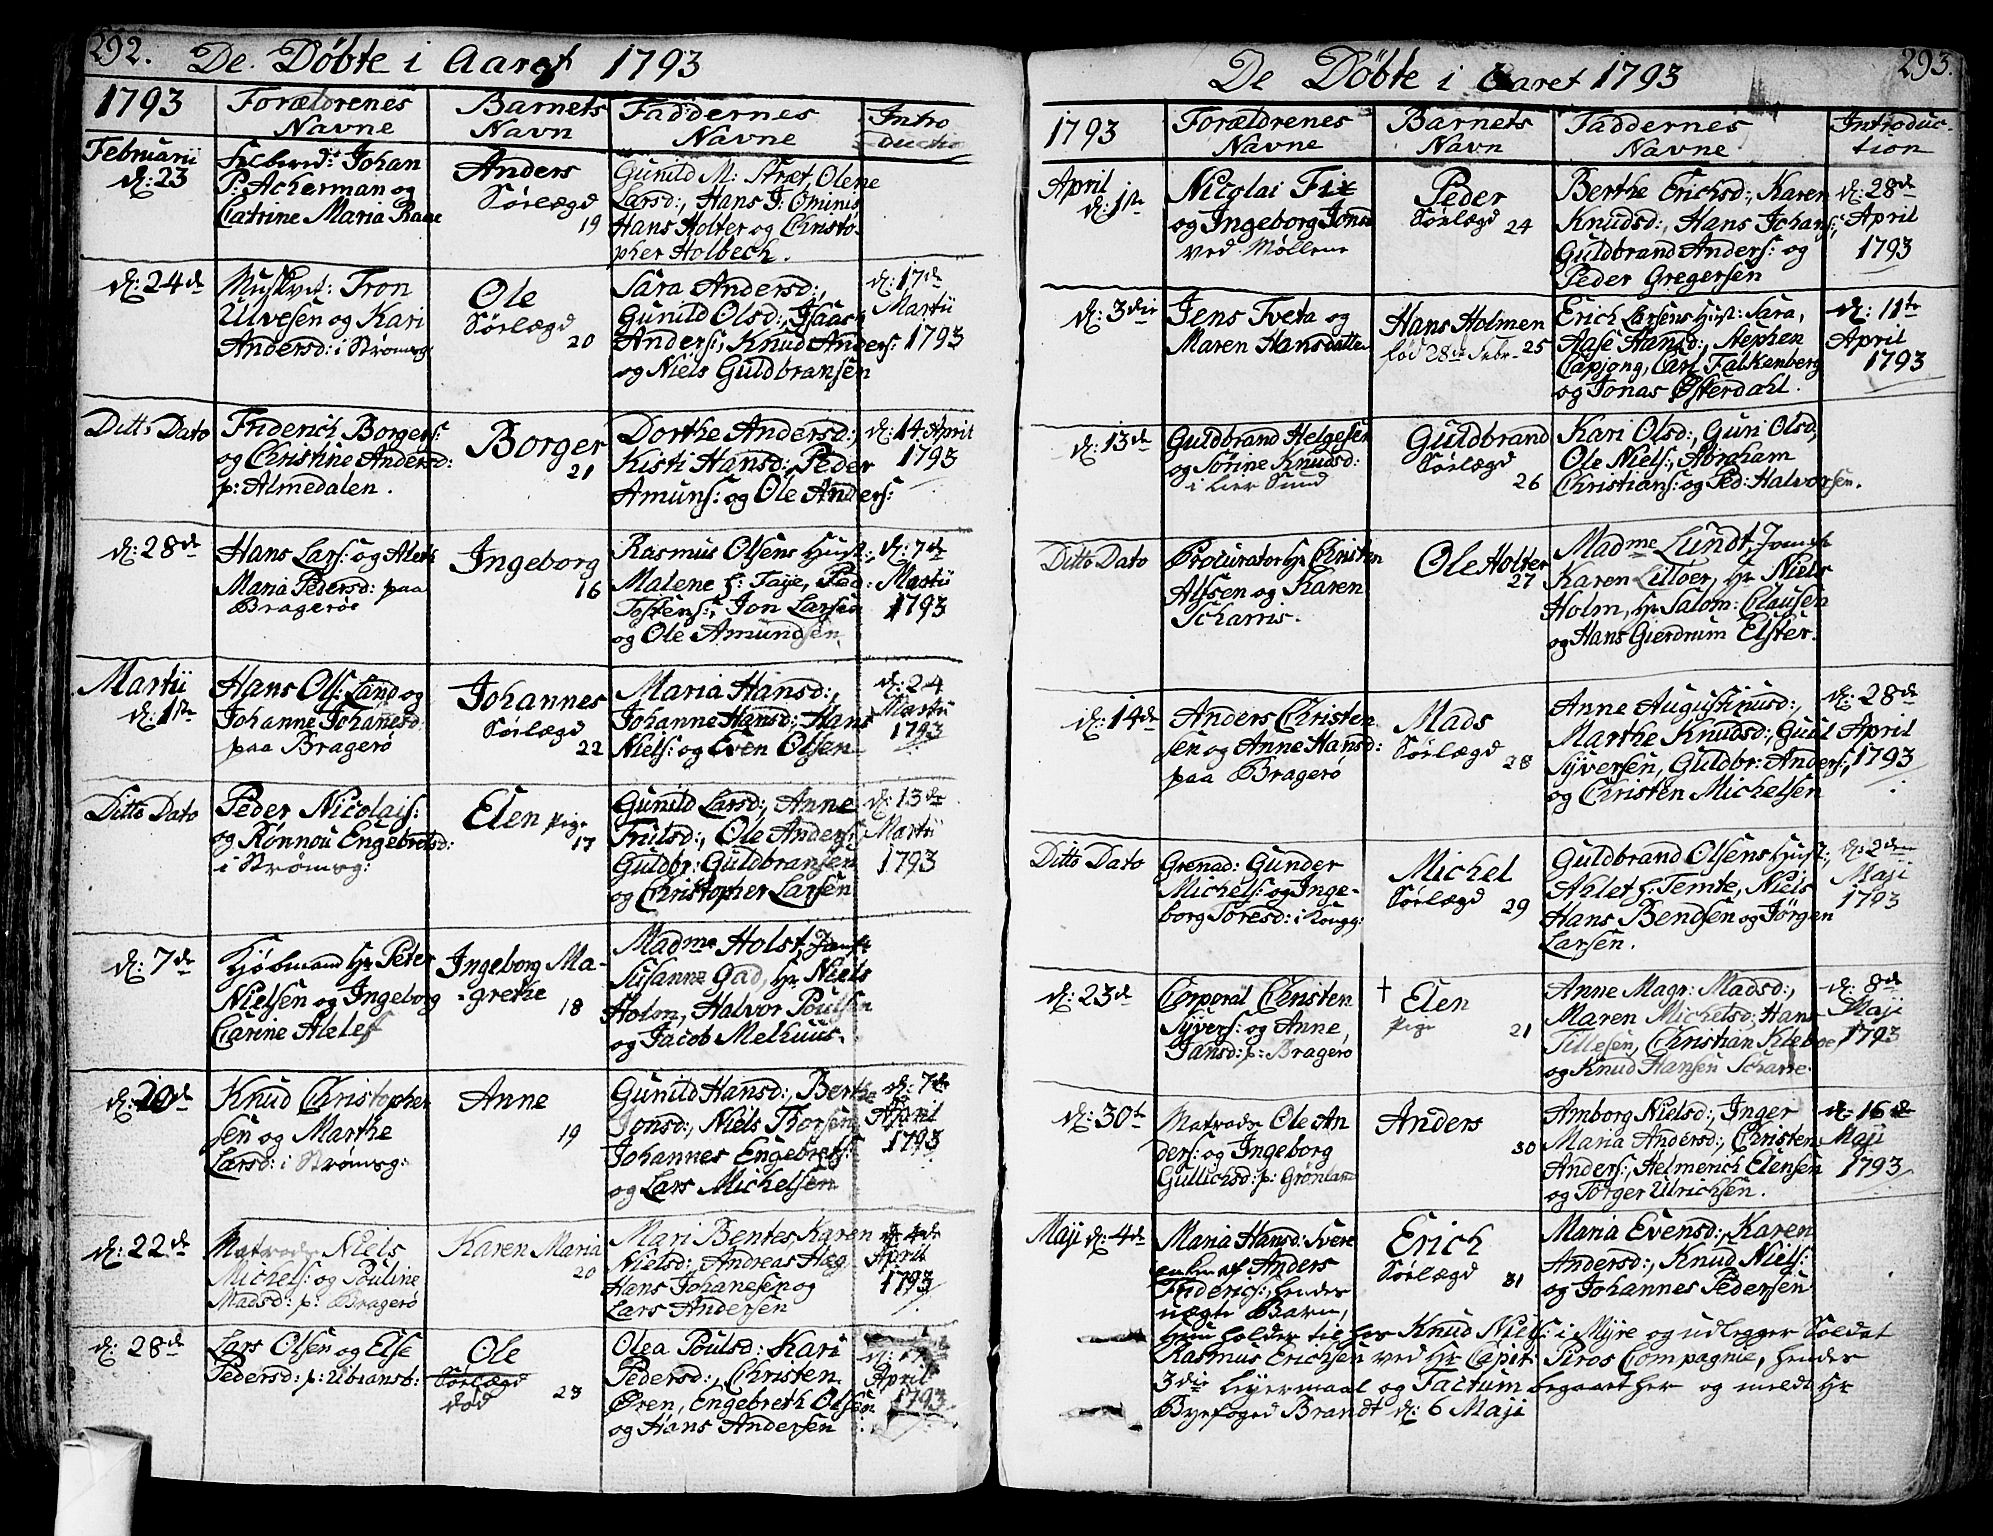 292. De Døbte i Aaret 1793
1793
Forældrenes Navne
Barnets Navn
Faddernes Navne
Introductio
Februarii d: 23
Johan
P: Ackerman og
Catrine Maria Raae
Anders
Sørlægd
19
Gunild M: Stræt, Olene
Larsd:, Hans J: Ominus
Hans Holter og Christo-
pher Holbech.
d: 24de
Muskvet: Tron
Ulvesen og Kari
Andersd: i Strømsg:
Ole
Sørlægd
20
Sara Andersd:,
Gunild Olsd:, Isaac
Anders:, Knud Anders:
og Niels Guldbransen
d: 17de
Martii
1793
Ditto Dato
Friderich Borgers:
og Christine Andersd:
p: Almedalen.
Borger
21
Dorthe Andersd:,
Kisti Hansd:, Peder
Amuns: og Ole Anders:
d: 14 April
1793
d: 28de
Hans Lars: og Alets
Maria Pedersd: paa
Bragerøe
Ingeborg
16
Rasmus Olsens Hust:,
Malene S: Taje, Ped:
Tostens:, Jon Larsen
og Ole Amundsen
d: 7de
Martii
1793
Martii
d: 1ste
Hans Ols: Land og
Johanne Johanesd
paa Bragerø
Johannes
Sørlægd
22
Maria Hansd:,
Johanne Hansd:, Hans
Niels: og Even Olsen
d: 24
Martii
1793
Ditto Dato
Peder Nicolais:
og Rønnou Engebretsd:
i Strømsg:
Elen Pige
17
Gunild Larsd:, Anne
Frilsd:, Ole Anders:
Guldbr: Guldbransen
og Christopher Larsen
d: 13de
Martii
1793
d: 7de
Kjøbmand Hr Peter
Nielsen og Ingeborg
Carine Alelef
Ingeborg Ma-
grethe
18
Madme Holst, Jomfr
Susanne Gad, Hr Niels
Holm, Halvor Poulsen
og Jacob Melhuus.
d: 20de
Knud Christopher
sen og Marthe
Larsd: i Strømsg:
Anne
19
Gunild Hansd:, Berthe
Jonsd:, Niels Thorsen
Johannes Engebrets:
og Lars Michelsen
d: 7de
April
1793
d: 22de
Matrods Niels
Michels: og Pouline
Madsd: p: Bragerø
Karen Maria
20
Mari Bentes Karen
Nielsd:, Andreas Hæg
Hans Johanesen og
Lars Andersen
d: 4de
April
1793
d: 28de
Lars Olsen og Else
Pedersd: p: Ubiansb:
Ole
Sørlægd
død
23
Olea Poulsd: Kari
Pedersd:, Christen
Øren, Engebreth Olsen
og Hans Andersen
April
1793
De Døbte i Aaret 1793
293.
1793
Forældrenes Navne
Barnets Navn
Faddernes Navne
Introduction
April
d: 1ste
Nicolai Fix
og Ingeborg Jonsd
ved Møllene
Peder
Sørlægd 24
Berthe Erichsd:, Karen
Knudsd:, Hans Johans:,
Guldbrand Anders: og
Peder Gregersen
d: 28de
April
1793
d: 3die
Jens Tveta og
Maren Hansdatter
Hans Holmen
fød 28de Febr. 25
Erich Larsens Hust: Sara,
Aase Hansd:, Stephen
Capjong, Carl Falkenberg
og Jonas Østerdahl.
d: 11te
April
1793
d: 13de
Guldbrand Helgesen
og Sørine Knudsd:
i Lier Sund
Guldbrand
Sørlægd
26
Kari Olsd:, Guri Olsd:,
Ole Niels:, Abraham
Christians: og Ped: Halvorsen.
Ditto Dato
Procurator Hr Christen
Alfsen og Karen
Scharris.
Ole Holter
27
Madme Lundt, Jomfr
Karen Litloer, Hr Niels
Holm, Hr Salom: Clausen
og Hans Gierdrum Elster.
d: 14de
Anders Christen
sen og Anne Hansd:
paa Bragerø
Mads
Sørlægd
28
Anne Augustinusd:,
Marthe Knudsd:, Gull
Syversen, Guldbr: Anders:,
og Christen Michelsen
d: 28de
April
1793
Ditto Dato
Grenad: Gunder
Michels: og Inge-
borg Toresd: i Kongg:
Michel
Sørlægd 29
Guldbrand Olsens Hust:,
Ahlet S: Temte, Niels
Hans Bendsen og Jørgen
Larsen.
d: 2den
Maji
1793
d: 23de
Corporal Christen
Syvers: og Anne
Jansd: p: Bragerø
† Elen
Pige
21
Anne Magr: Madsd:,
Maren Michelsd:, Hans
Tillesen, Christian Kleboe,
og Knud Hansen Scharre
d: 8de
Maji
1793
d: 30te
Matrods Ole An
ders: og Ingeborg
Gullichsd: p: Grønland
Anders
30
Amborg Nielsd:, Inger
Maria Andersd:, Christen
Anders:, Helmerich Elensen
og Torger Ulrichsen.
d: 16de
Maji
1793
Maji d: 4de
Maria Hansd: Svere
enke af Anders
Friderics:, hendes
uægte Barn,
Erich
Sørlægd
31
Maria Evensd:, Karen
Andersd:, Knud Niels:
og Johannes Pedersen
hun holder til hos Knud Niels: i Myre og udlegger Soldat
Rasmus Erichsen ved Hr Capit: Siros Compagnie, hendes
3die Leyermaal og Factum begaaet her og meldt Hr
Byefoged Brandt d: 6 Maji